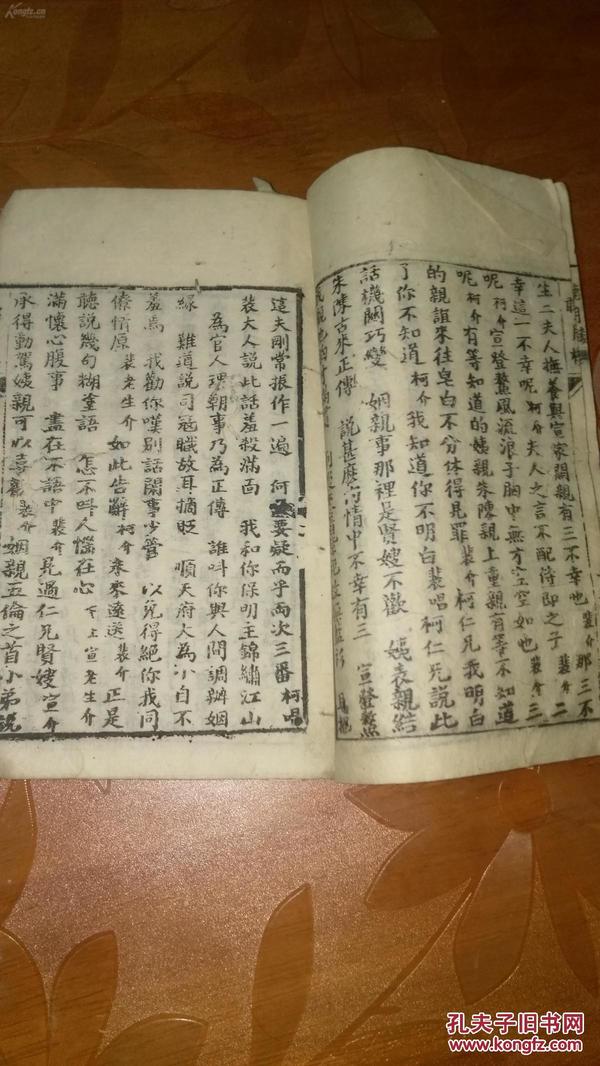 生二夫人撫養與宣家開親有三不幸也 裴介 那三不
幸這一不幸呢 柯介 夫人之言不配侍郎之子 裴介 二
呢 柯介 宣登鰲風流浪子胸中無才空空如也 裴介 三
呢 柯介 有等知道的姨親朱陳親上重親有等不知道
的親誼來往皂白不分休得見罪 裴介 柯仁兄我明白
了你不知道 柯介 我知道你不明白 裴唱 柯仁兄說此
話機關巧變 姻親事那裡是賢嫂不歡 姨表親結
朱陳古來正傳 說甚麽 情中不幸有三 宣登鰲
這夫剛常振作一遍 何 要疑而乎兩次三番 柯唱
裴大人說此話羞殺滿面 我和你保明主錦繡江山
為官人理朝事乃為正傳 誰叫你與人間調辦姻
緣 難道說司寇職故耳摘貶 順天府大為小自不
羞焉 我勸你嘆別話閑事少管 以免得絕你我同
僚情原 裴老生介 如此告辭 柯介 來來遠送 裴介 正是
聽說幾句糊塗語 怎不叫人惱在心 下 上 宣老生介
滿懷心腹事 盡在不語中 裴介 見過仁兄賢嫂 宣介
承得動駕姨親可以喜 裴介 姻親五倫之首小弟說
孔夫子旧书网
www.kongfz.com
Kongfz.cn